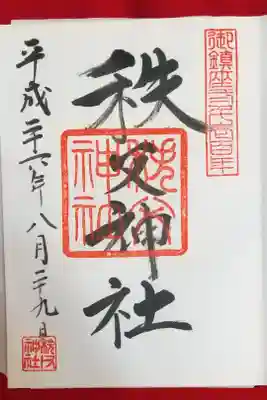 御鎮座弐千壱百年
秩父神社
秩父
神社
平成二十六年八月二十九日
秩父
神社